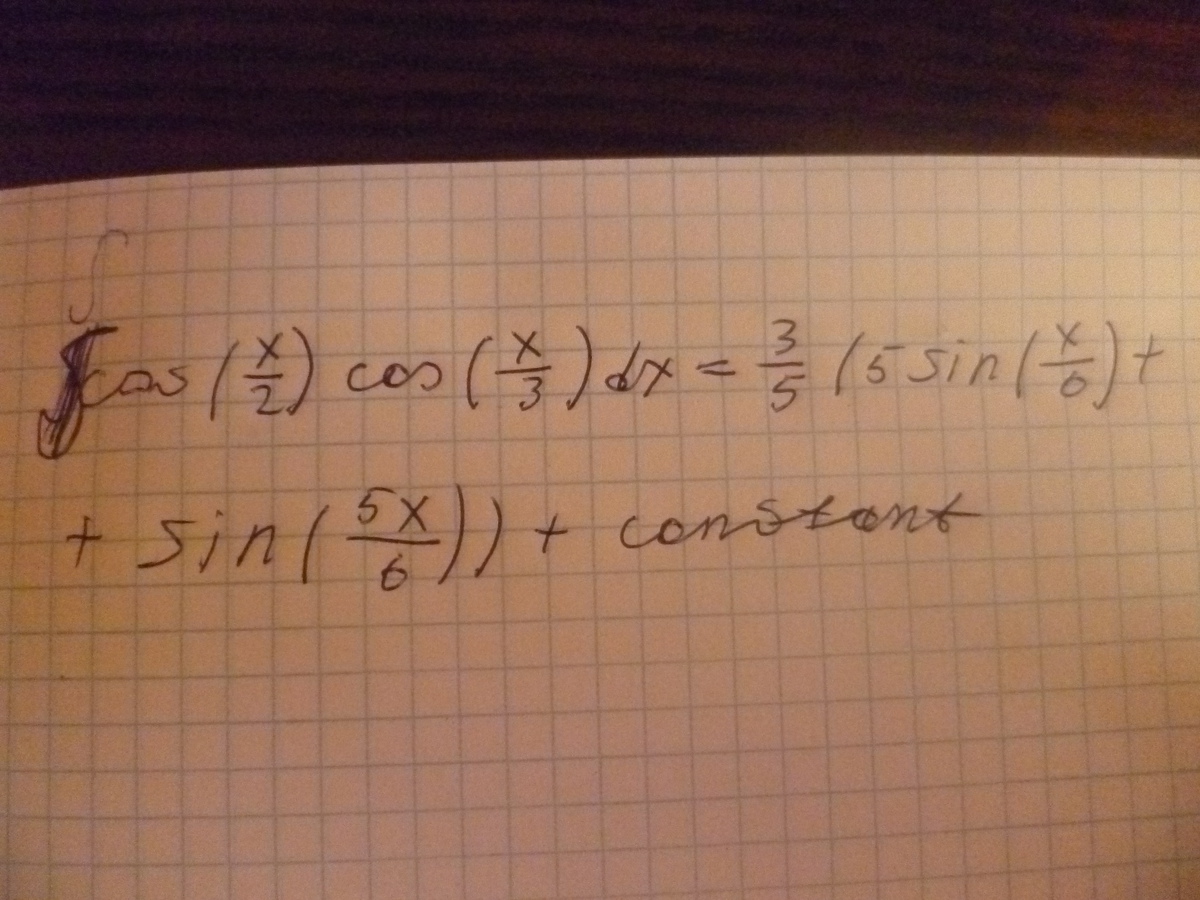 ∫
∫cos(x/2) cos(x/3)dx = 3/5 (5 sin(x/6) +
+ sin(5x/6)) + constant